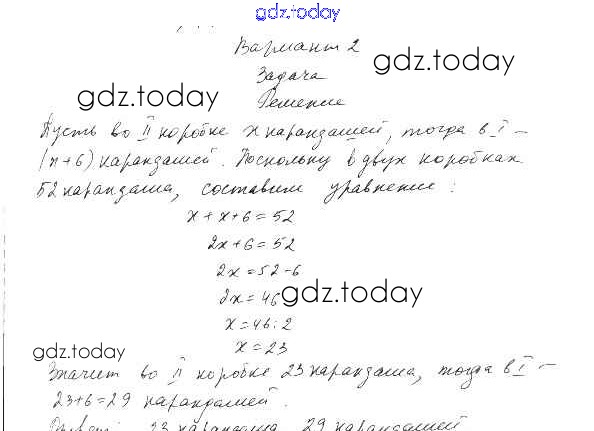 gdz.today
Вариант 2
gdz.today
Задача
gdz.today
Решение
Пусть во II коробке x карандашей, тогда в I –
(x+6) карандашей. Поскольку в двух коробках
52 карандаша, составим уравнение:
x + x + 6 = 52
2x + 6 = 52
2x = 52 - 6
2x = 46
gdz.today
x = 46 : 2
x = 23
gdz.today
Значит во II коробке 23 карандаша, тогда в I –
23+6=29 карандашей.
Ответ: 23 карандаша, 29 карандашей